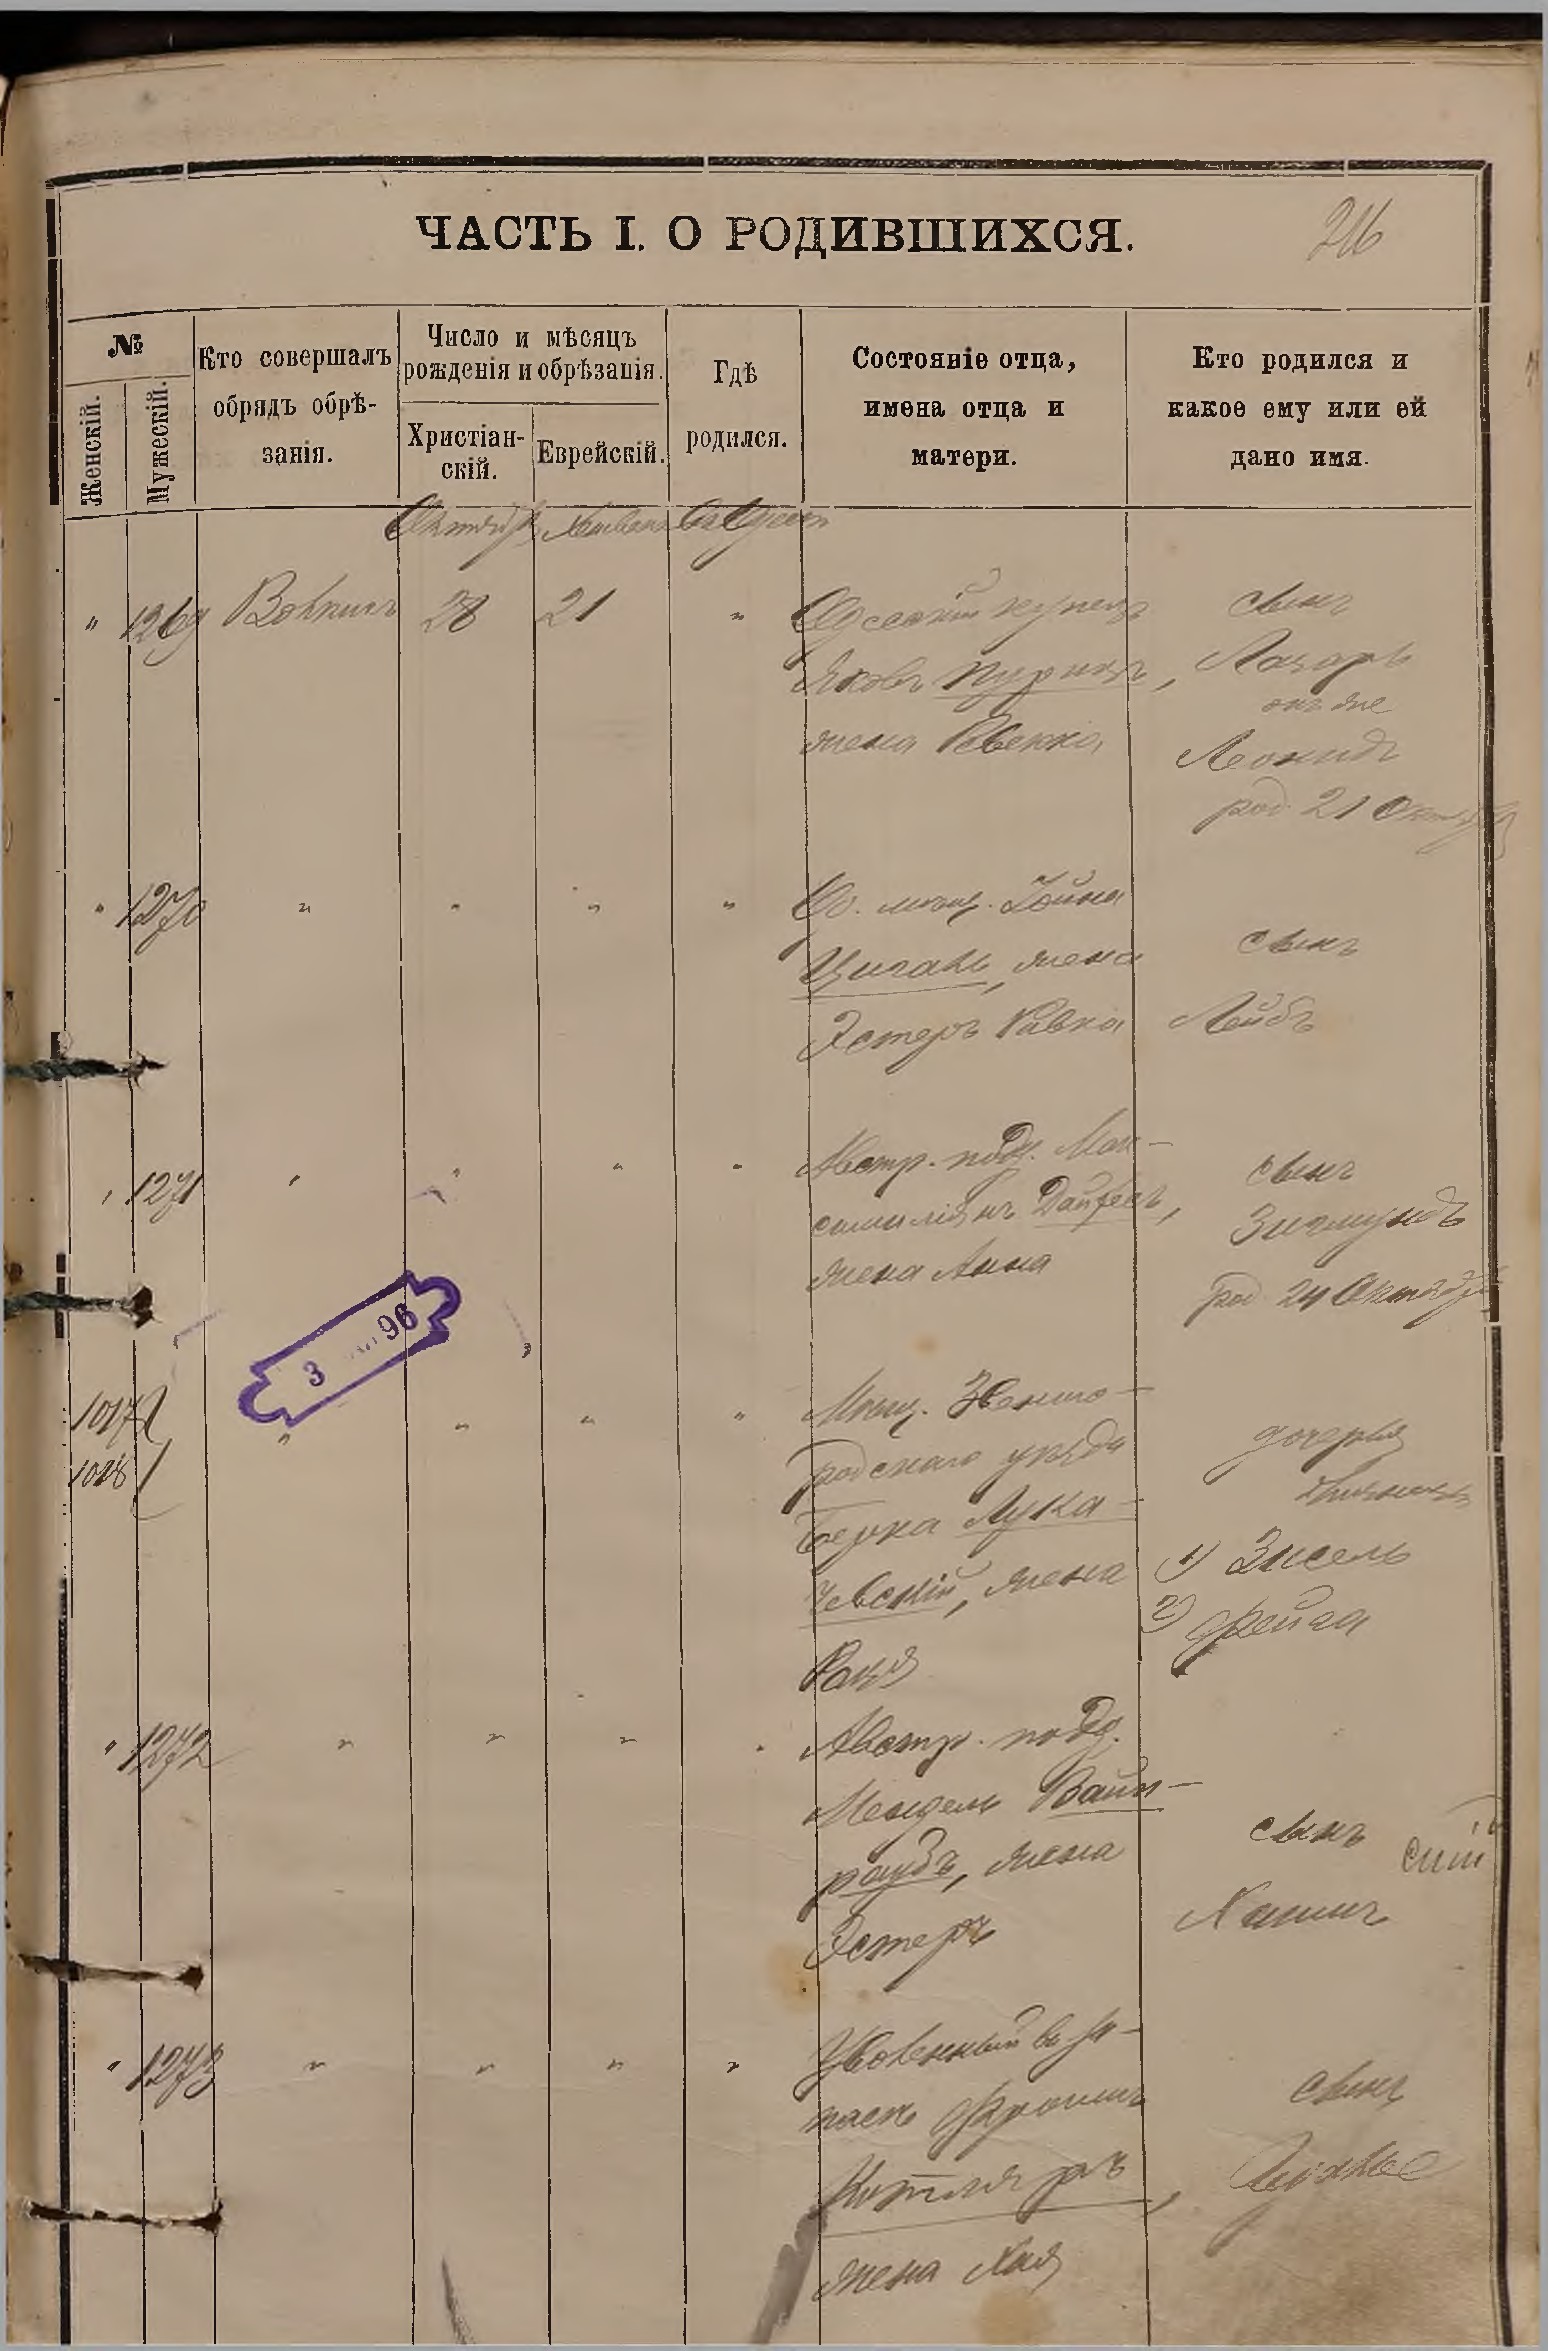 216
ЧАСТЬ I. О РОДИВШИХСЯ.
№
Женскій.
Мужескій.
Кто совершалъ
обрядъ обрѣ-
занія.
Число и мѣсяцъ
рожденія и обрѣзанія.
Христіан-
скій.
Еврейскій.
Гдѣ
родился.
Состояніе отца,
имена отца и
матери.
Кто родился и
какое ему или ей
дано имя.
Октября Хешвана Въ Одессѣ
" 1269 28 21 "
Одесскій купецъ
Яковъ Пурицъ,
жена Ревекка
сынъ
Лазарь
онъ же
Леонидъ
род. 21 Октября
" 1270 " " " "
Од. мѣщ. Іойна
Цигань, жена
Эстеръ Ривка
сынъ
Лейбъ
" 1271 " " " "
Австр. подд. Мак-
симиліянъ
жена Анна
сынъ
Зигмундъ
род. 24 Октября
3 96
1017
1018
" " " "
Мѣщ. Звениго-
родскаго уѣзда
Берка Лука-
чевскій, жена
дочерья
близнецы
1) Зисель
2) Фейга
" 1272 " " " "
Австр. подд.
Мендель Вайн-
раубъ, жена
Эстеръ
сынъ
Хаимъ
" 1273 " " " "
Уволенный въ за-
пасъ Фроимъ
Котляръ,
жена Хая
сынъ